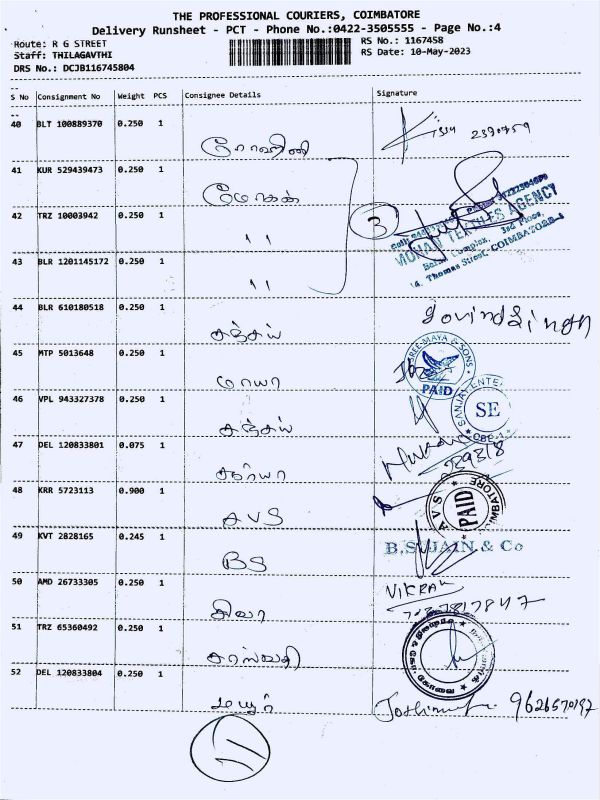 THE PROFESSIONAL COURIERS, COIMBATORE
Delivery Runsheet - PCT - Phone No.:0422-3505555 - Page No.:4
Route: R G STREET
RS No.: 1167458
Staff: THILAGAVTHI
RS Date: 10-May-2023
DRS No.: DCJB116745804
S No Consignment No Weight PCS Consignee Details Signature
40 BLT 100889370 0.250 1
ரோஹினி
41 KUR 529439473 0.250 1
மோகன்
MOHAN TEXTILES AGENCY
3rd Floor,
Thomas Street, COIMBATORE-1
3
42 TRZ 10003942 0.250 1
〃
43 BLR 1201145172 0.250 1
〃
44 BLR 610180518 0.250 1
சஞ்சய்
45 MTP 5013648 0.250 1
மாயா
SREE-MAYA & SONS
PAID
46 VPL 943327378 0.250 1
சஞ்சய்
SANJAY ENTER
SE
CBE-1
47 DEL 120833801 0.075 1
சூர்யா
48 KRR 5723113 0.900 1
AVS
PAID
49 KVT 2828165 0.245 1
BS
B.S. JAIN & Co
50 AMD 26733305 0.250 1
சிவா
VIKRAM
51 TRZ 65360492 0.250 1
சரஸ்வதி
52 DEL 120833804 0.250 1
மயூர்
9626570197